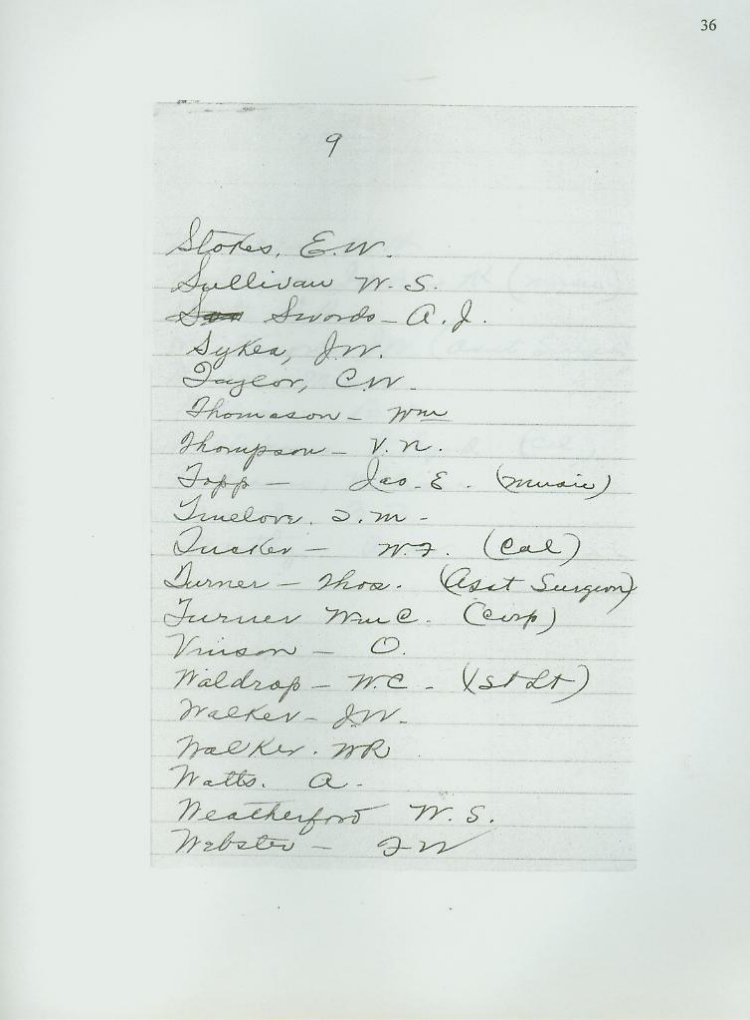 36
9
Stokes, E.W.
Sullivan W. S.
Swords - A. J.
Sykes, J.W.
Taylor, C.W.
Thomason - Wm
Thompson - V. N.
Topp - Jas. E. (music)
Truelove. T. M -
Tucker - W.F. (Col)
Turner - Thos. (Asst Surgeon)
Turner Wm C. (Corp)
Vinson - O.
Waldrop - W.C - (1st Lt)
Walker - J.W.
Walker. WR
Watts. A.
Weatherford W. S.
Webster - F W